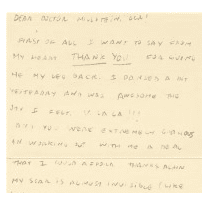 DEAR DOCTOR MILLSTEIN, OLA!
FIRST OF ALL I WANT TO SAY FROM
MY HEART THANK YOU FOR GIVING
ME MY LEG BACK. I DANCED A BIT
YESTERDAY AND WAS AWESOME THE
JOY I FELT.
AND YOU WERE EXTREMELY GENEROUS
IN WORKING OUT WITH ME A DEAL
THAT I COULD AFFORD THANKS AGAIN
MY SCAR IS ALMOST INVISIBLE! LIKE